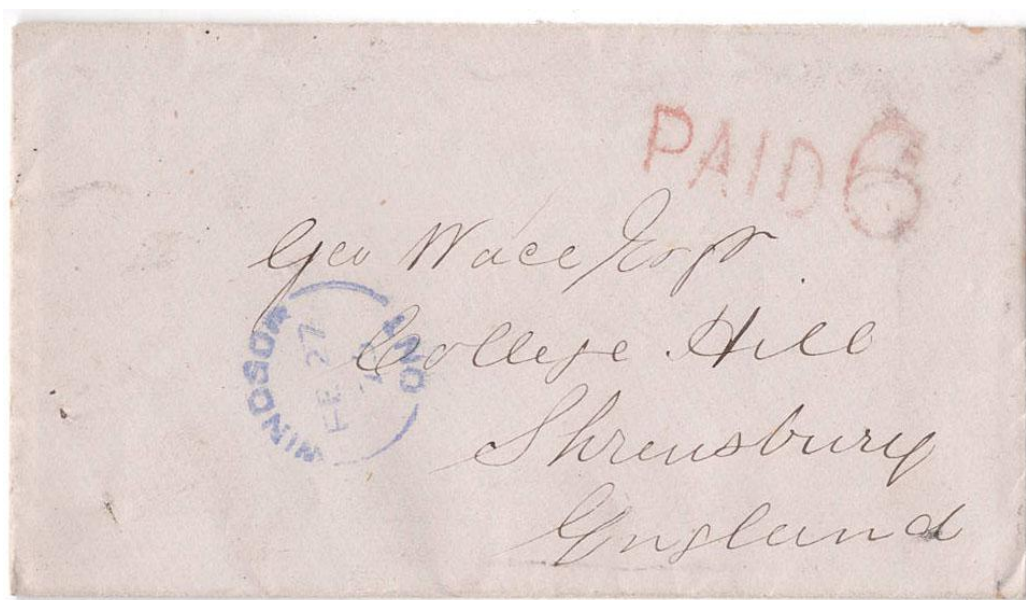 PAID 6
Geo Wace Esqr
College Hill
Shrewsbury
England
WINDSOR ONT
FE 27